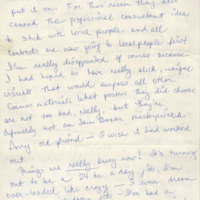 put it on. For this reason they also
canned the professional consultant idea
to stick with local people and all
contracts are now going to local people first.
I'm really disappointed of course because
I had hoped to have really slick, unique
visuals that would surpass all other
Comm materials like what posters they did choose
are not too bad, really, but they're
definitely not an Ian Baxter masterpiece.
Sorry old friend — I wish I had worked
out.
Things are really busy now! It's turning
out to be a 24 hr a day job, I'm
over-loaded like crazy — I even dream